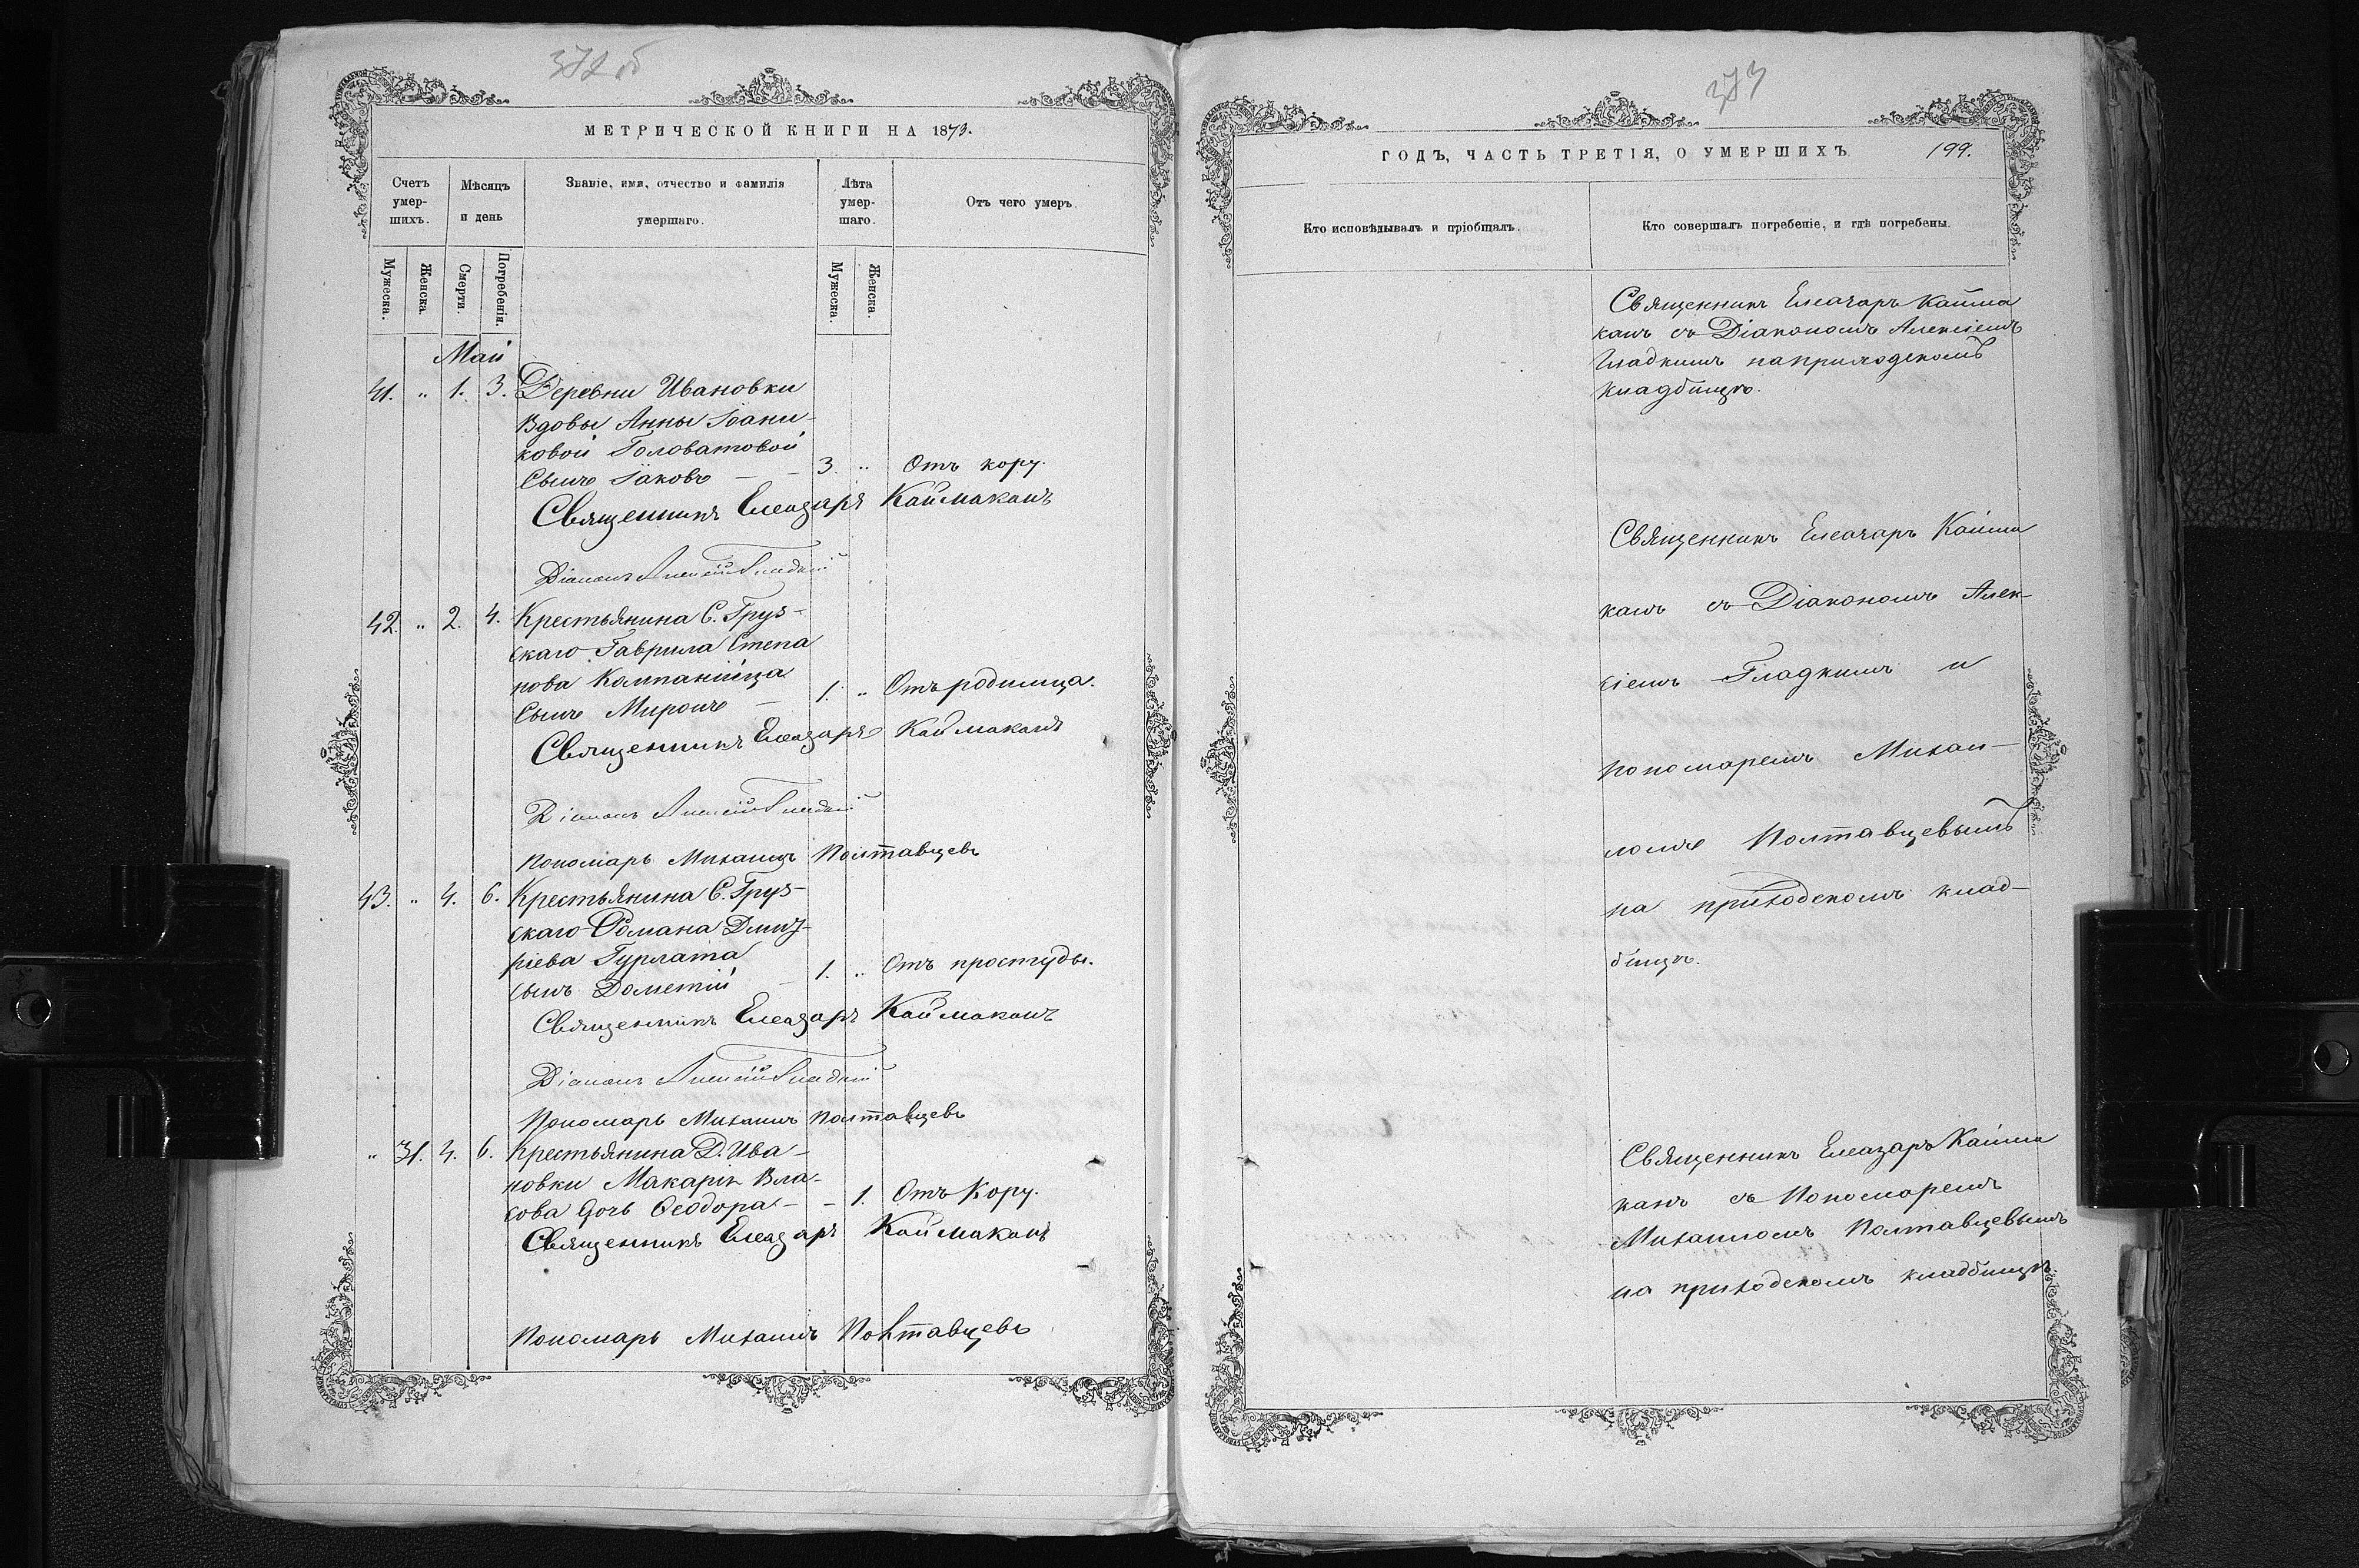 372 об
МЕТРИЧЕСКОЙ КНИГИ НА 1873.
Счетъ умер-шихъ.
Мѣсяцъ и день
Званіе, имя, отчество и фамилія умершаго.
Лѣта умер-шаго.
Отъ чего умеръ.
Мужеска.
Женска.
Смерти.
Погребенія.
Мужеска.
Женска.
Май
41. " 1. 3. Деревни Ивановки
Вдовы Анны Іоани-
ковой Головатовой
Сынъ Іаковъ — 3. " Отъ кору.
Священникъ Елеазаръ Каймаканъ
Діаконъ Алексій Гладкій
42. " 2. 4. Крестьянина С. Груз-
скаго Гаврила Степа
нова Компанійца
Сынъ Миронъ — 1. " Отъ родимца.
Священникъ Елеазаръ Каймаканъ
Діаконъ Алексій Гладкій
Пономарь Михаилъ Полтавцевъ
43. " 4. 6. Крестьянина С. Груз-
скаго Романа Дмит-
ріева Гурлата
сынъ Дометій — 1. " Отъ простуды.
Священникъ Елеазаръ Каймаканъ
Діаконъ Алексій Гладкій
Пономарь Михаилъ Полтавцевъ
" 31. 4. 6. Крестьянина Д. Ива-
новки Макарія Вла-
сова дочь Ѳеодора - - 1. Отъ Кору.
Священникъ Елеазаръ Каймаканъ
Пономарь Михаилъ Полтавцевъ
373
ГОДЪ, ЧАСТЬ ТРЕТІЯ, О УМЕРШИХЪ. 199.
Кто исповѣдывалъ и пріобщалъ.
Кто совершалъ погребеніе, и гдѣ погребены.
Священникъ Елеазаръ Кайма
канъ съ Діакономъ Алексіемъ
Гладкимъ на приходскомъ
кладбищѣ.
Священникъ Елеазаръ Кайма
канъ съ Діакономъ Алек-
сіемъ Гладкимъ и
пономаремъ Михаи-
ломъ Полтавцевымъ
на приходскомъ клад-
бищѣ.
Священникъ Елеазаръ Кайма
канъ съ Пономаремъ
Михаиломъ Полтавцевымъ
на приходскомъ кладбищѣ.